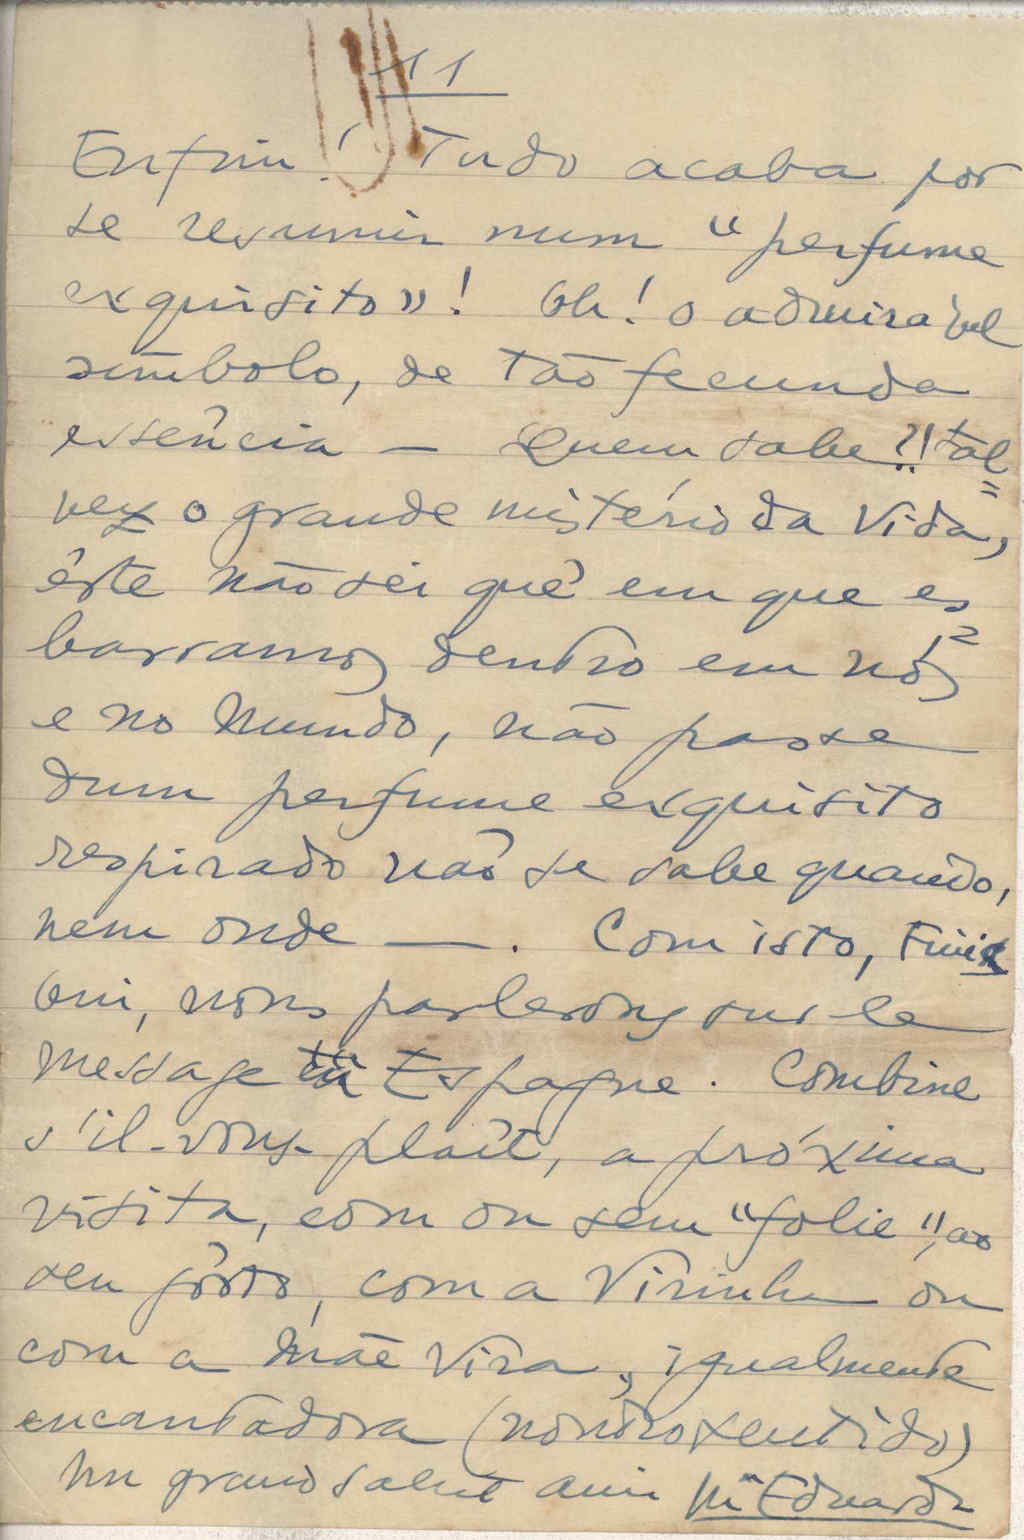 11
Enfim! Tudo acaba por
se resumir num "perfume
exquisito"! Oh! o admirável
símbolo, de tão fecunda
essência — Quem sabe?!! tal=
vez o grande mistério da Vida,
êste não sei quê em que es=
barramos dentro em nós
e no Mundo, não passe
dum perfume exquisito
respirado não se sabe quando,
nem onde —. Com isto, Finis
Oui, nous parlerons sur le
message Espagne. Combine
s'il-vous-plaît, a próxima
visita, com ou sem "folie", ao
seu gôsto, com a Virinha ou
com a Mãe Vira, igualmente
encantadora (noutro sentido)
Un grand salut ami Mª Eduarda